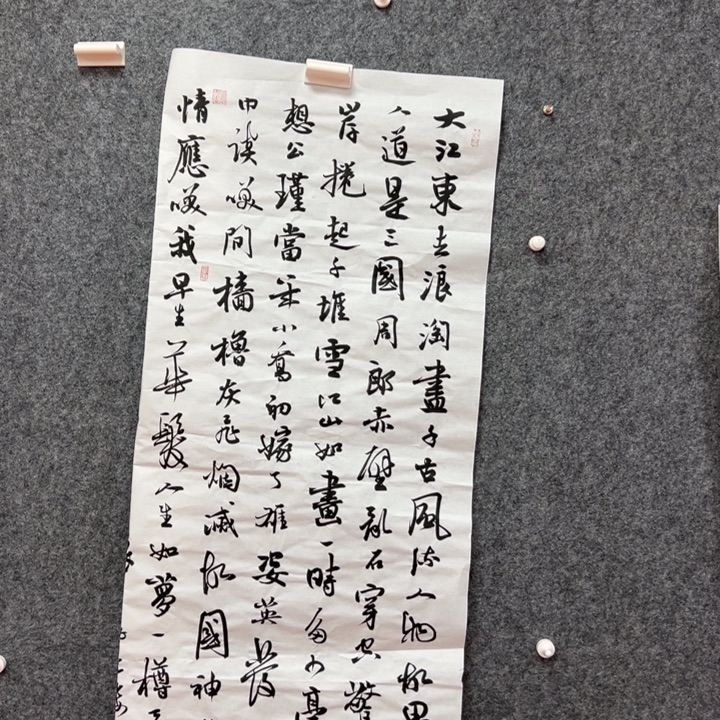 大江東去浪淘盡千古風流人物故
人道是三國周郎赤壁亂石穿空驚
岸捲起千堆雪江山如畫一時多少豪
想公瑾當年小喬初嫁了雄姿英發
巾談笑間檣櫓灰飛烟滅故國神
情應笑我早生華髮人生如夢一樽